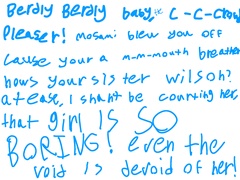 Berdly Berdly baby, C-C-Crowd
Pleaser! mosami blew you off
Cause your a m-m-mouth breather
hows your sister wilson?
atease, I shan't be counting her,
that girl IS SO
BORING! even the
void is devoid of her!